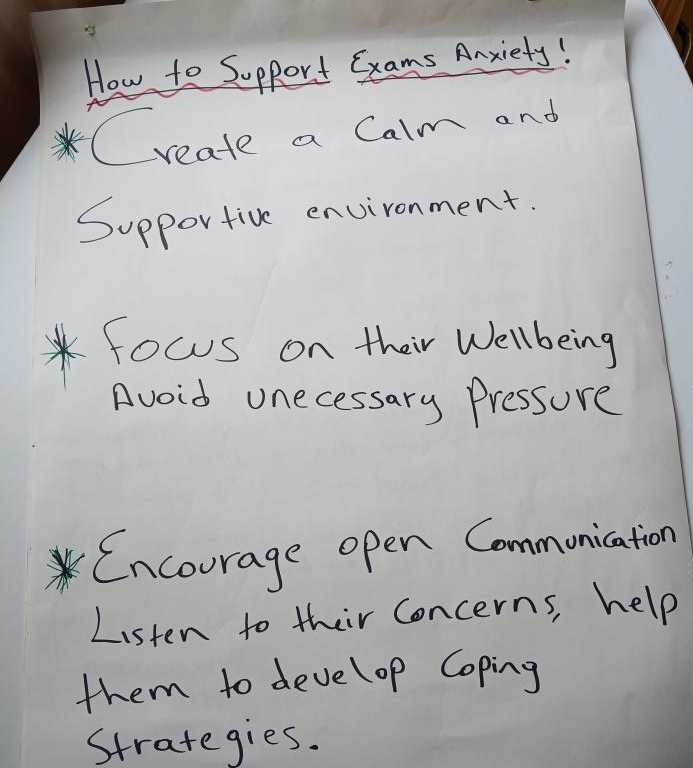 How to Support Exams Anxiety!
* Create a Calm and
Supportive environment.
* Focus on their Wellbeing
Avoid unecessary Pressure
* Encourage open Communication
Listen to their Concerns, help
them to develop Coping
Strategies.